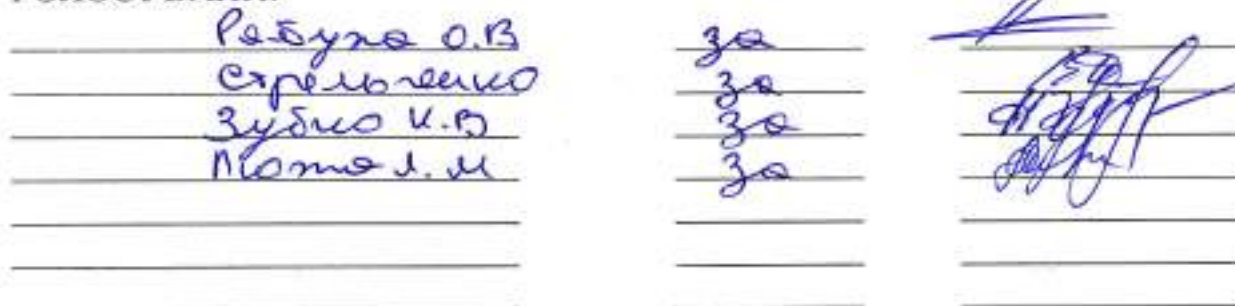 Рябуха О.В за
Стрельченко за
Зубко К.В за
Л.М за